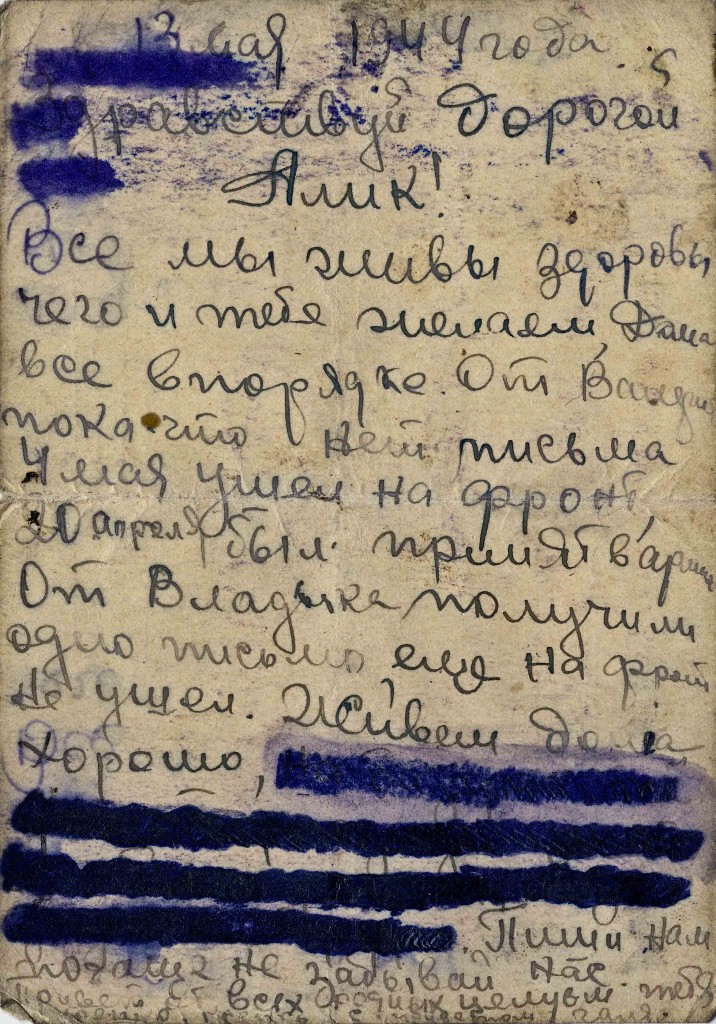 13 мая 1944 года.
Здравствуй дорогой
Алик!
Все мы живы здоровы
чего и тебе желаем, Дома
все впорядке. От
пока что нет письма
4 мая ушел на фронт,
20 апреля был принят в
От Владика получили
одно письмо, еще на фронт
не ушел. Живем дома
хорошо,
Пиши нам
почаще не забывай нас.
Привет от всех родных целуем тебя